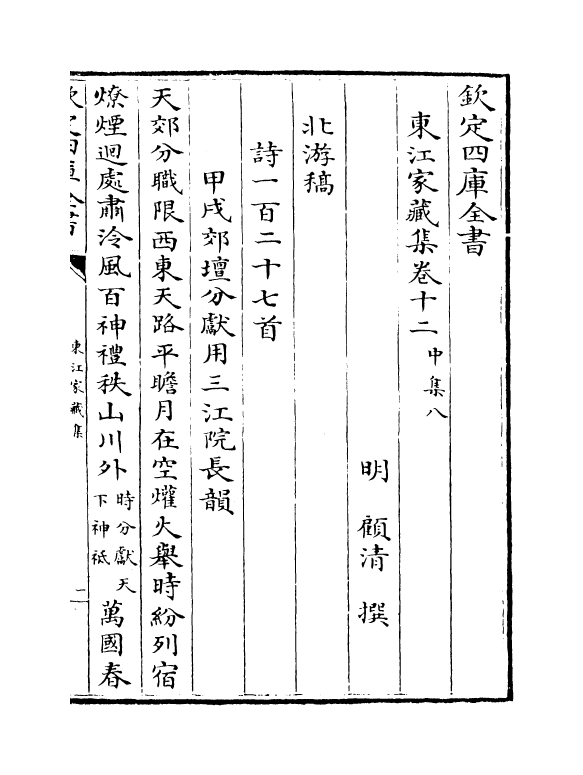 欽定四庫全書
東江家藏集卷十二 中集八
明 顧清 撰
北游稿
詩一百二十七首
甲戌郊壇分獻用三江院長韻
天郊分職限西東天路平瞻月在空爟火舉時紛列宿
燎煙迴處肅泠風百神禮秩山川外時分獻天下神祗萬國春
欽定四庫全書
東江家藏集